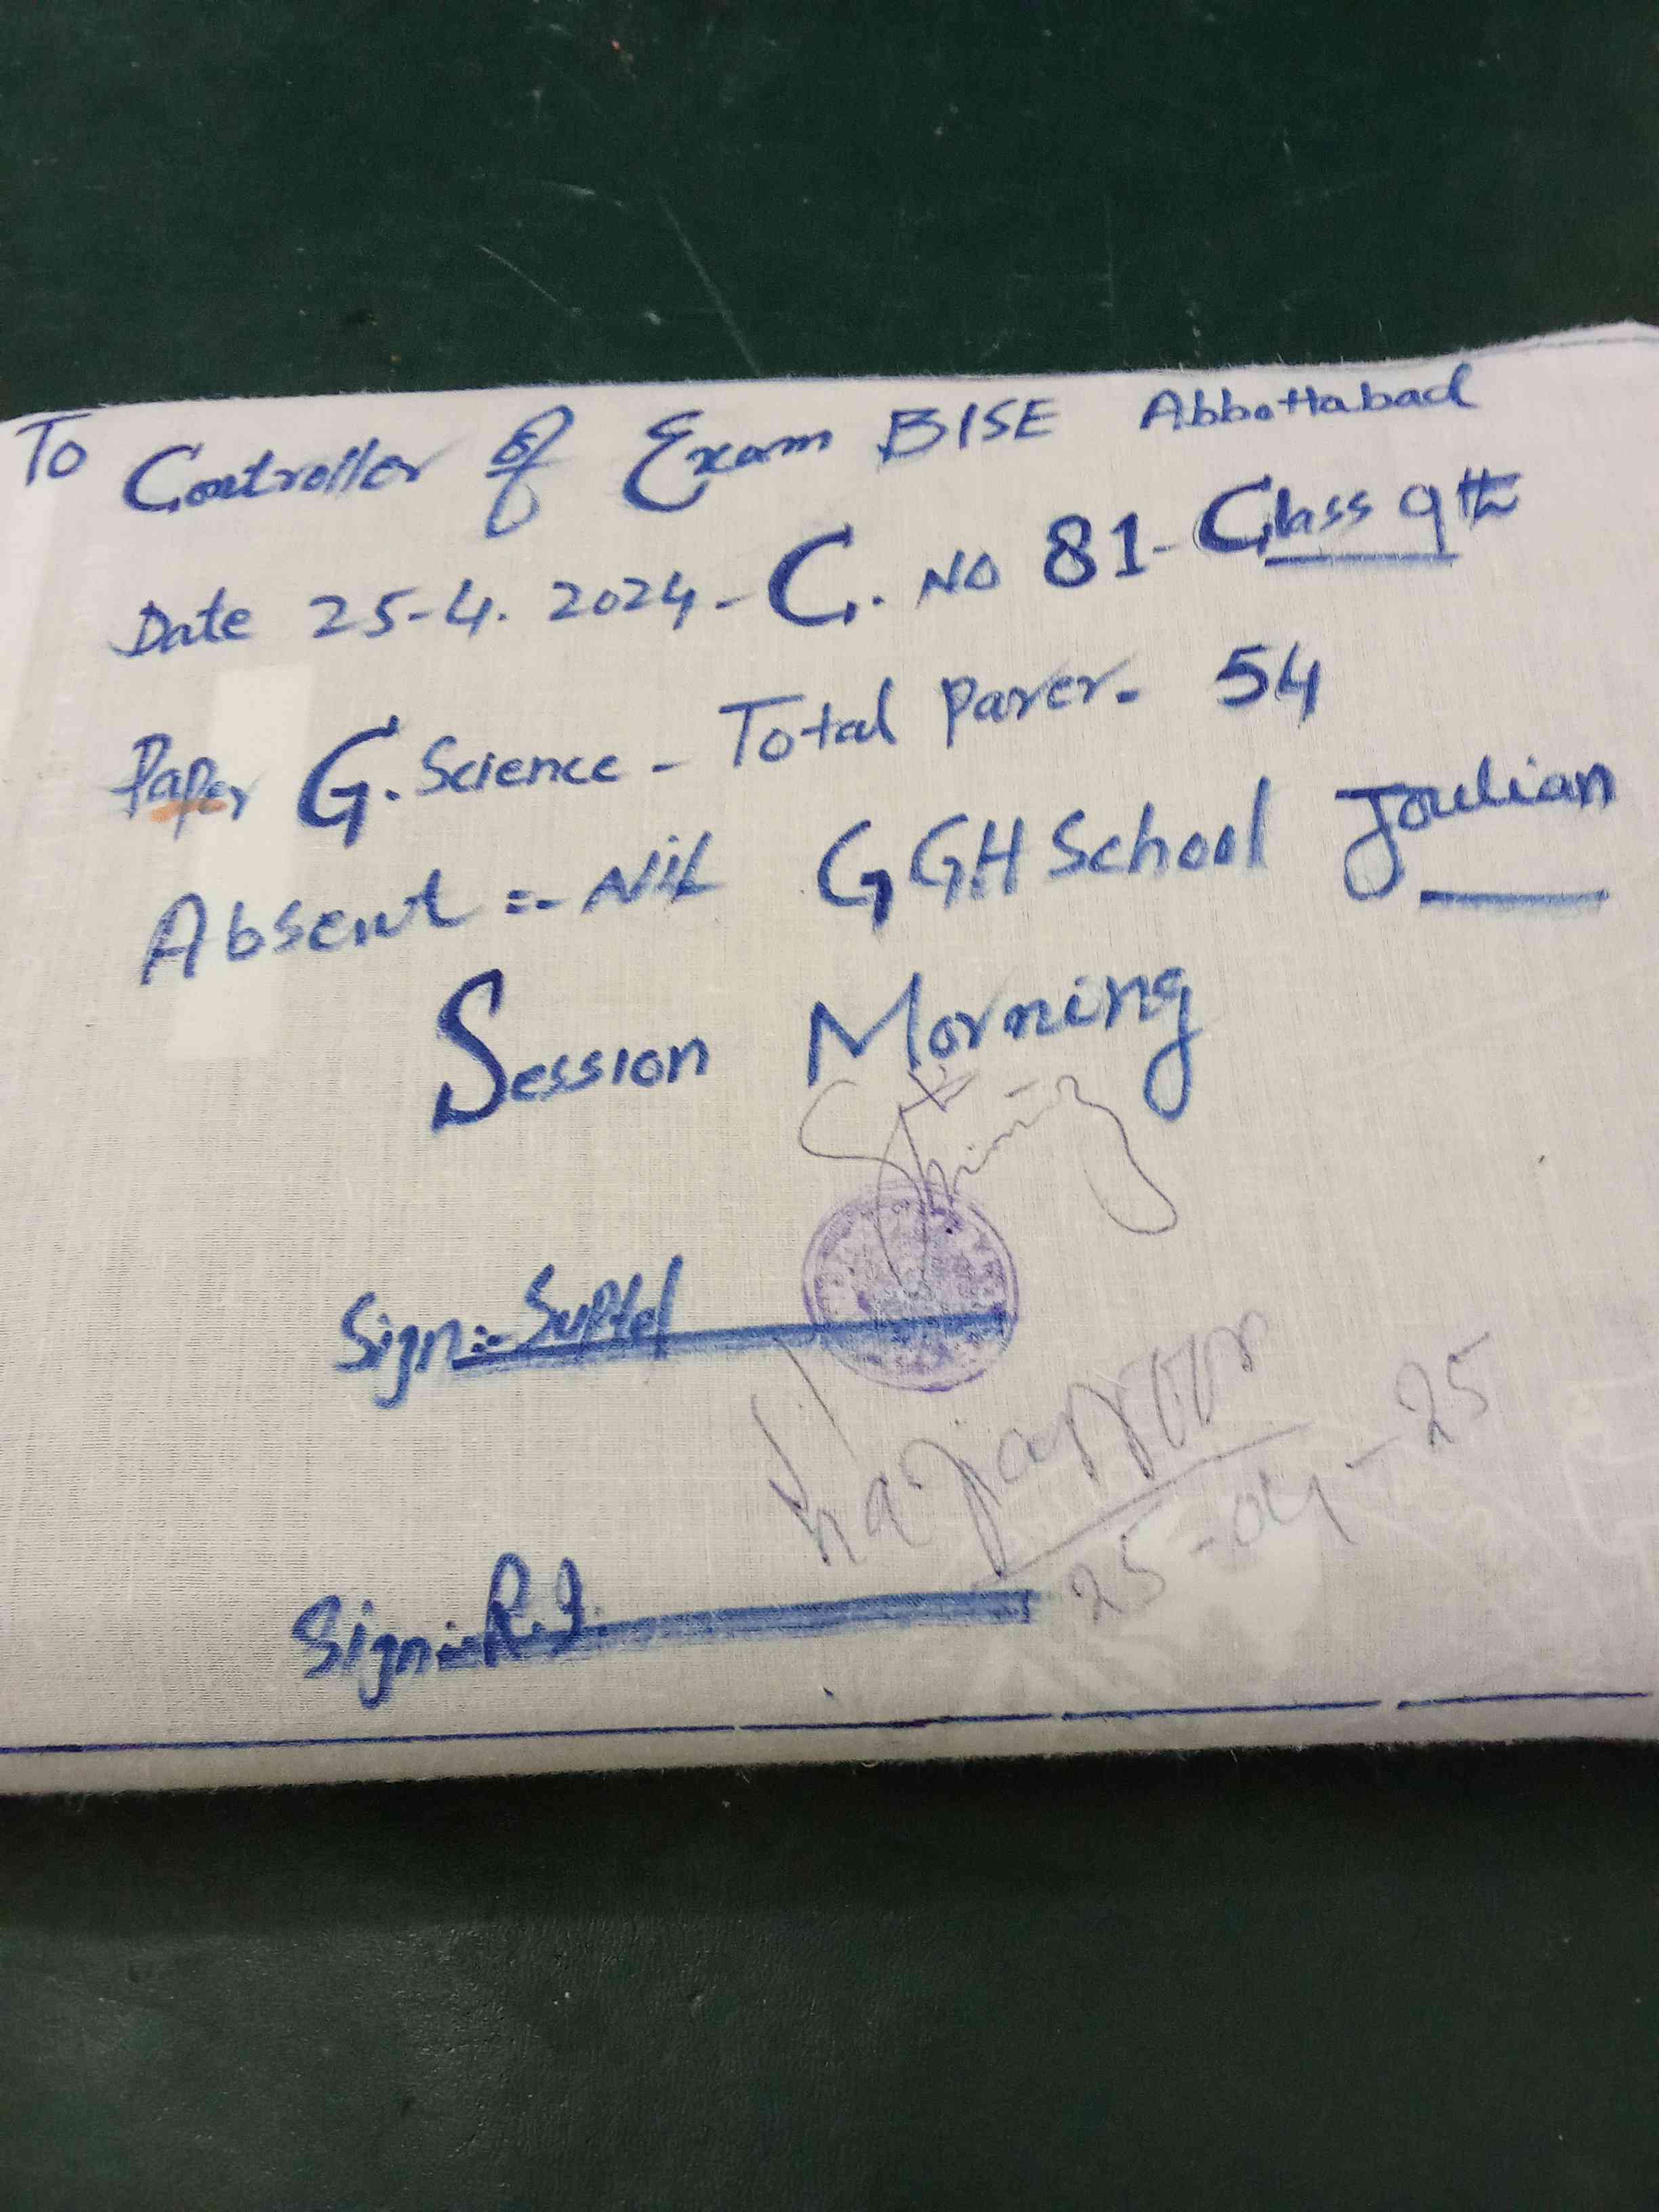 To Controller of Exam BISE Abbottabad
Date 25-4. 2024 - C. No 81 - Class 9th
Paper G. Science - Total Paper - 54
Absent :- Nil GGH School Joulian
Session Morning
Sign:- Suptd
25-04-25
Sign:- R.I.